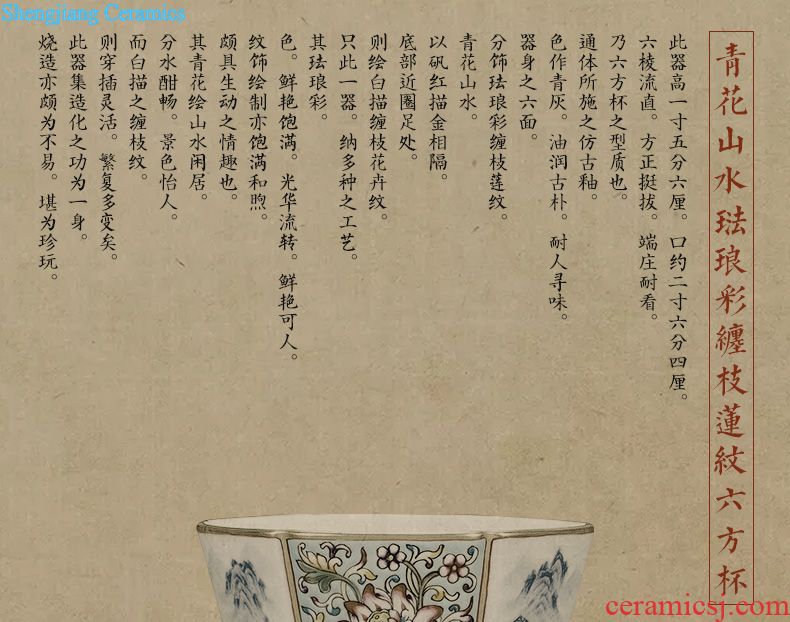 Shengjiang Ceramics
青花山水珐琅彩纏枝蓮紋六方杯
此器高一寸五分六厘。口约二寸六分四厘。
六棱流直。方正挺拔。端庄耐看。
乃六方杯之型质也。
通体所施之仿古釉。
色作青灰。油润古朴。耐人寻味。
器身之六面。
分饰珐琅彩缠枝莲纹。
青花山水。
以矾红描金相隔。
底部近圈足处。
则绘白描缠枝花卉纹。
只此一器。纳多种之工艺。
其珐琅彩。
色。鲜艳饱满。光华流转。鲜艳可人。
纹饰绘制亦饱满和煦。
颇具生动之情趣也。
其青花绘山水闲居。
分水酣畅。景色怡人。
而白描之缠枝纹。
则穿插灵活。繁复多变矣。
此器集造化之功为一身。
烧造亦颇为不易。堪为珍玩。
ceramicsj.com